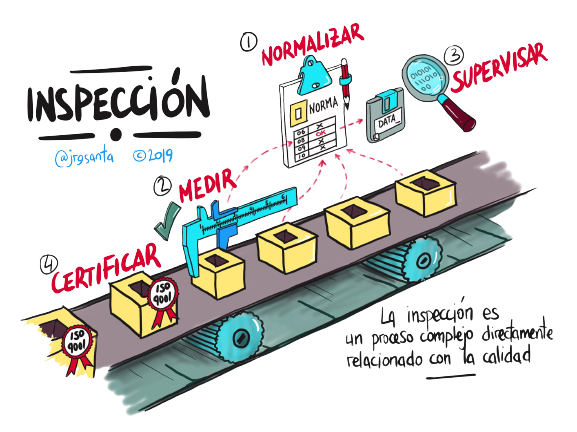 INSPECCIÓN
@jrgsanta ©2019
① NORMALIZAR
NORMA
06 X
08 OK
09 X
10 X
DATA
③ SUPERVISAR
010101
111010
00
② MEDIR
④ CERTIFICAR
ISO
9001
ISO
9001
La inspección es
un proceso complejo directamente
relacionado con la calidad